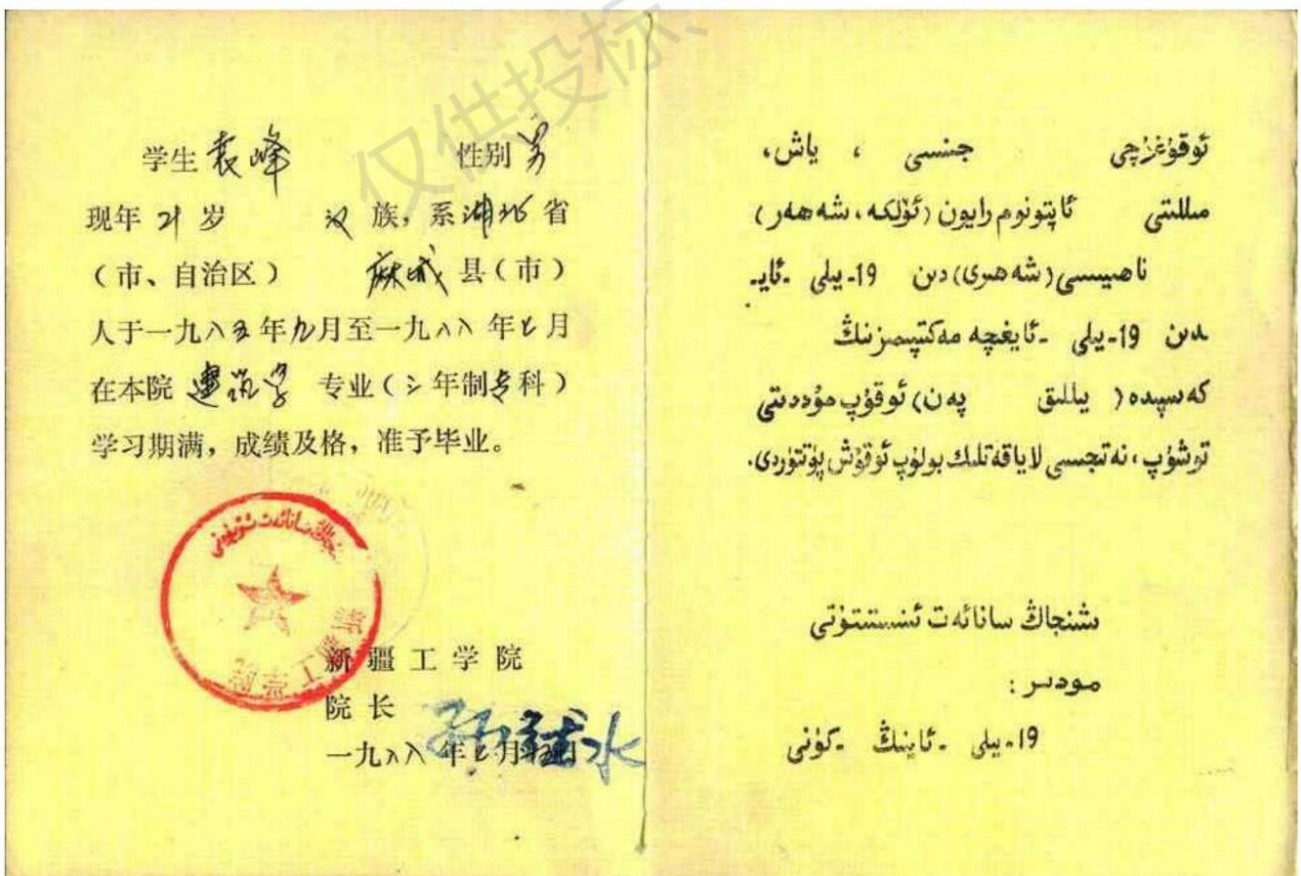 仅供投标、
学生 袁峰 性别 男
现年 21 岁 汉 族，系 湖北 省
（市、自治区） 麻城 县（市）
人于一九八五年九月至一九八八年七月
在本院 建筑学 专业（三年制专科）
学习期满，成绩及格，准予毕业。
新疆工学院
新疆工学院
院长
一九八八年七月 日
ئوقۇغۇچى جىنسى ، ياش،
مىللىتى ئاپتونوم رايون (ئۆلكە، شەھەر)
ناھىيىسى (شەھرى) دىن 19-يىلى -ئاي-
دىن 19-يىلى -ئايغىچە مەكتىپىمىزنىڭ
كەسپىدە ( يىللىق پەن) ئوقۇپ مۇددىتى
توشۇپ، نەتىجىسى لاياقەتلىك بولۇپ ئوقۇش پۈتتۈردى.
شىنجاڭ سانائەت ئىنستىتۇتى
مۇدىر:
19-يىلى -ئاينىڭ -كۈنى